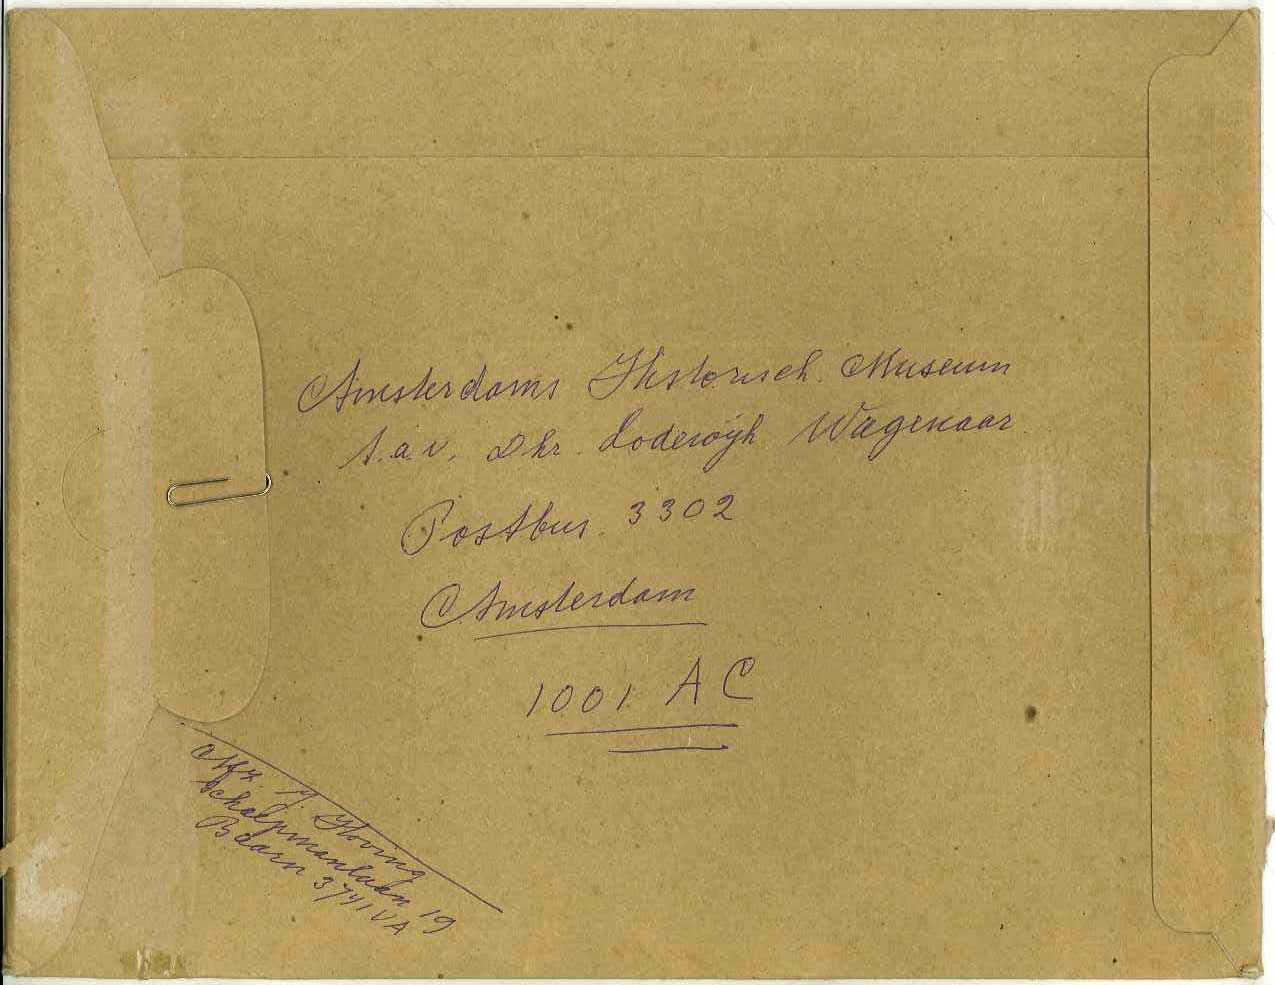 Amsterdams Historisch Museum
t.a.v. Dhr. Lodewijk Wagenaar
Postbus 3302
Amsterdam
1001 AC
J. Hoving
Schaepmanlaan 19
Baarn 3741 VA